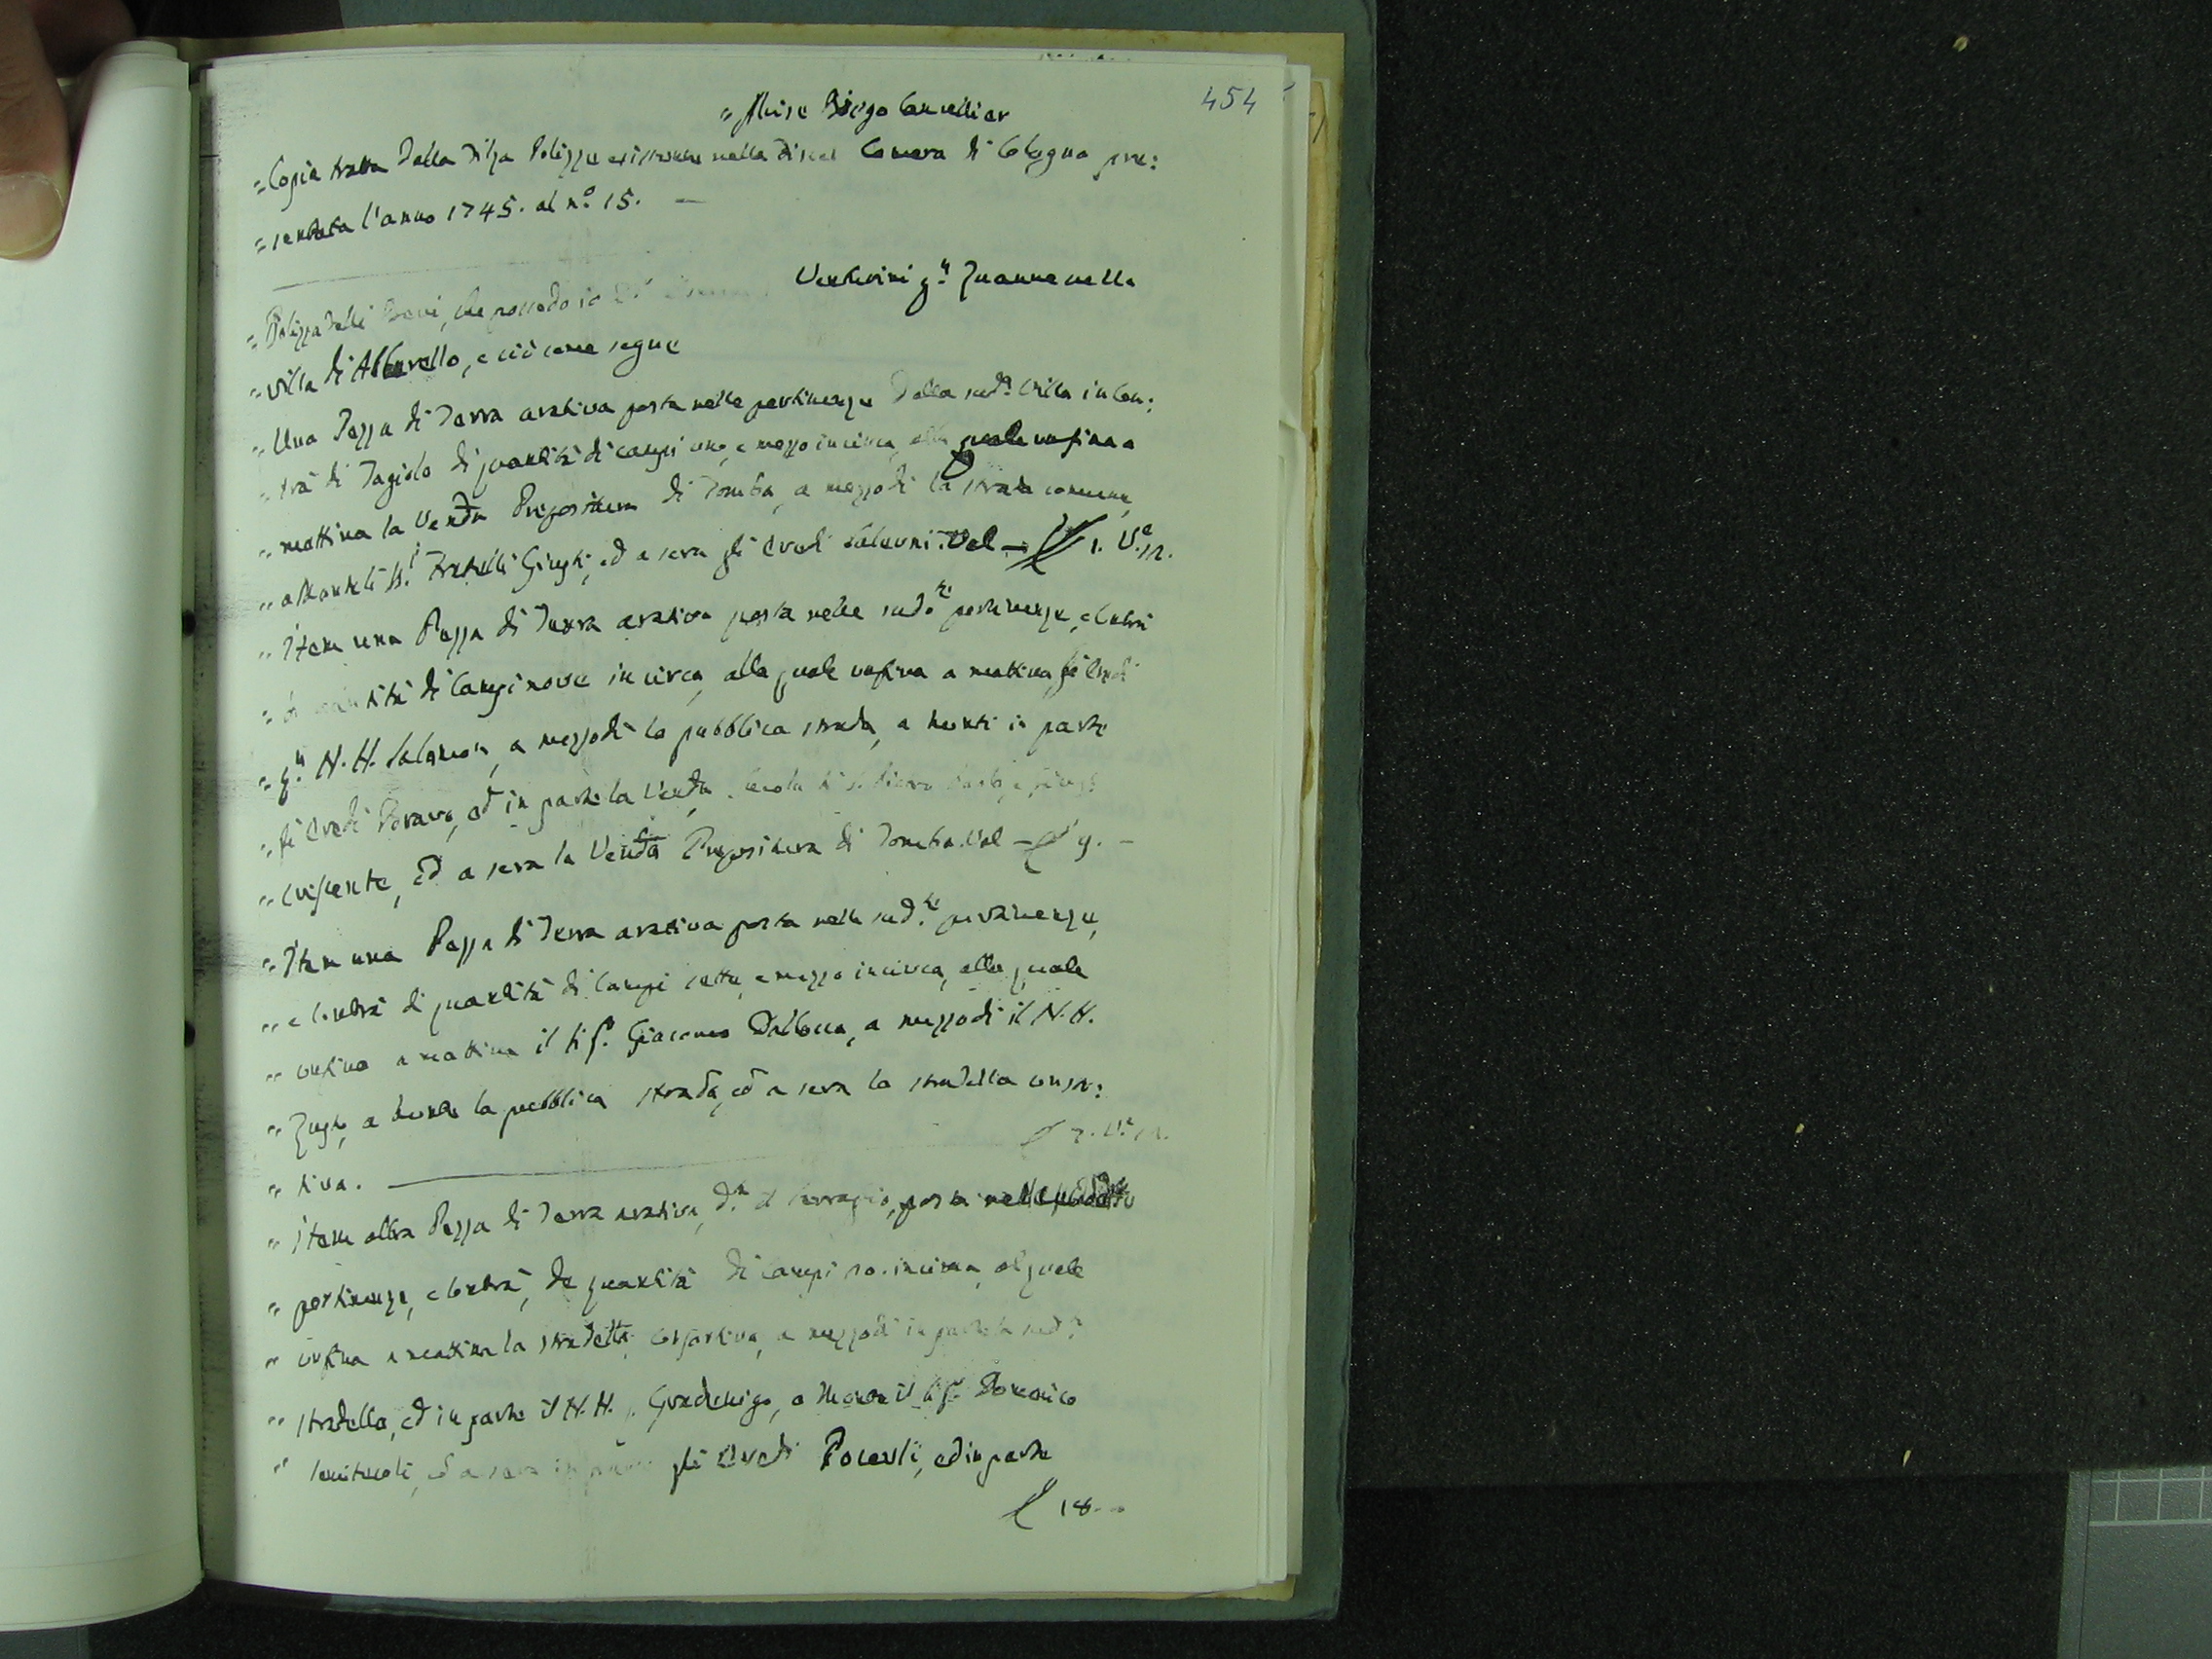 454
" Alvise Biego Cancellier
" Copia tratta dalla Filza Polizze esistente nella Fiscal Camera di Cologna pre:
" sentata l'anno 1745. al n.o 15. —
" Polizza delli Beni, che possedo io Venturini q.m Zuanne nella
" Villa di Albarello, e ciò come segue
" Una Pezza di Terra arativa posta nelle pertinenze della sud.a Villa in Con:
" trà di quantità di campi uno, e mezzo incirca, alla quale confina a
" mattina la Venda Prepositura di Tomba, a mezzodì la strada comune,
" a Monte li SS.i Fratelli Giusti, ed a sera gli Eredi Val — 1. V.e 12.
" Item una Pezza di Terra arativa posta nelle sud.te pertinenze, e Contrà
" di quantità di Campi nove incirca, alla quale confina a mattina gli Eredi
" q.m N. H. Salamon, a mezzodì la pubblica strada, a monti in parte
" gli Eredi ed in parte la Venda
" ed a sera la Venda Prepositura di Tomba. Val — 9. —
" Item una Pezza di Terra arativa posta nelle sud.te pertinenze,
" e Contrà di quantità di Campi sette, e mezzo incirca, alla quale
" confina a mattina il Sig.r Giacomo a mezzodì il N. H.
" a monte la pubblica strada, ed a sera la stradella consor:
" tiva. — 7. V.e 12.
" Item altra Pezza di Terra arativa, d.a il Serraglio, posta nelle suddette
" pertinenze, e Contrà, de quantità di campi incirca, al quale
" confina a mattina la stradella consortiva, a mezzodì in parte la sud.a
" stradella, ed in parte il N. H. Gradenigo, a Monte il Sig.r Domenico
" ed a sera in parte gli Eredi ed in parte
18. —